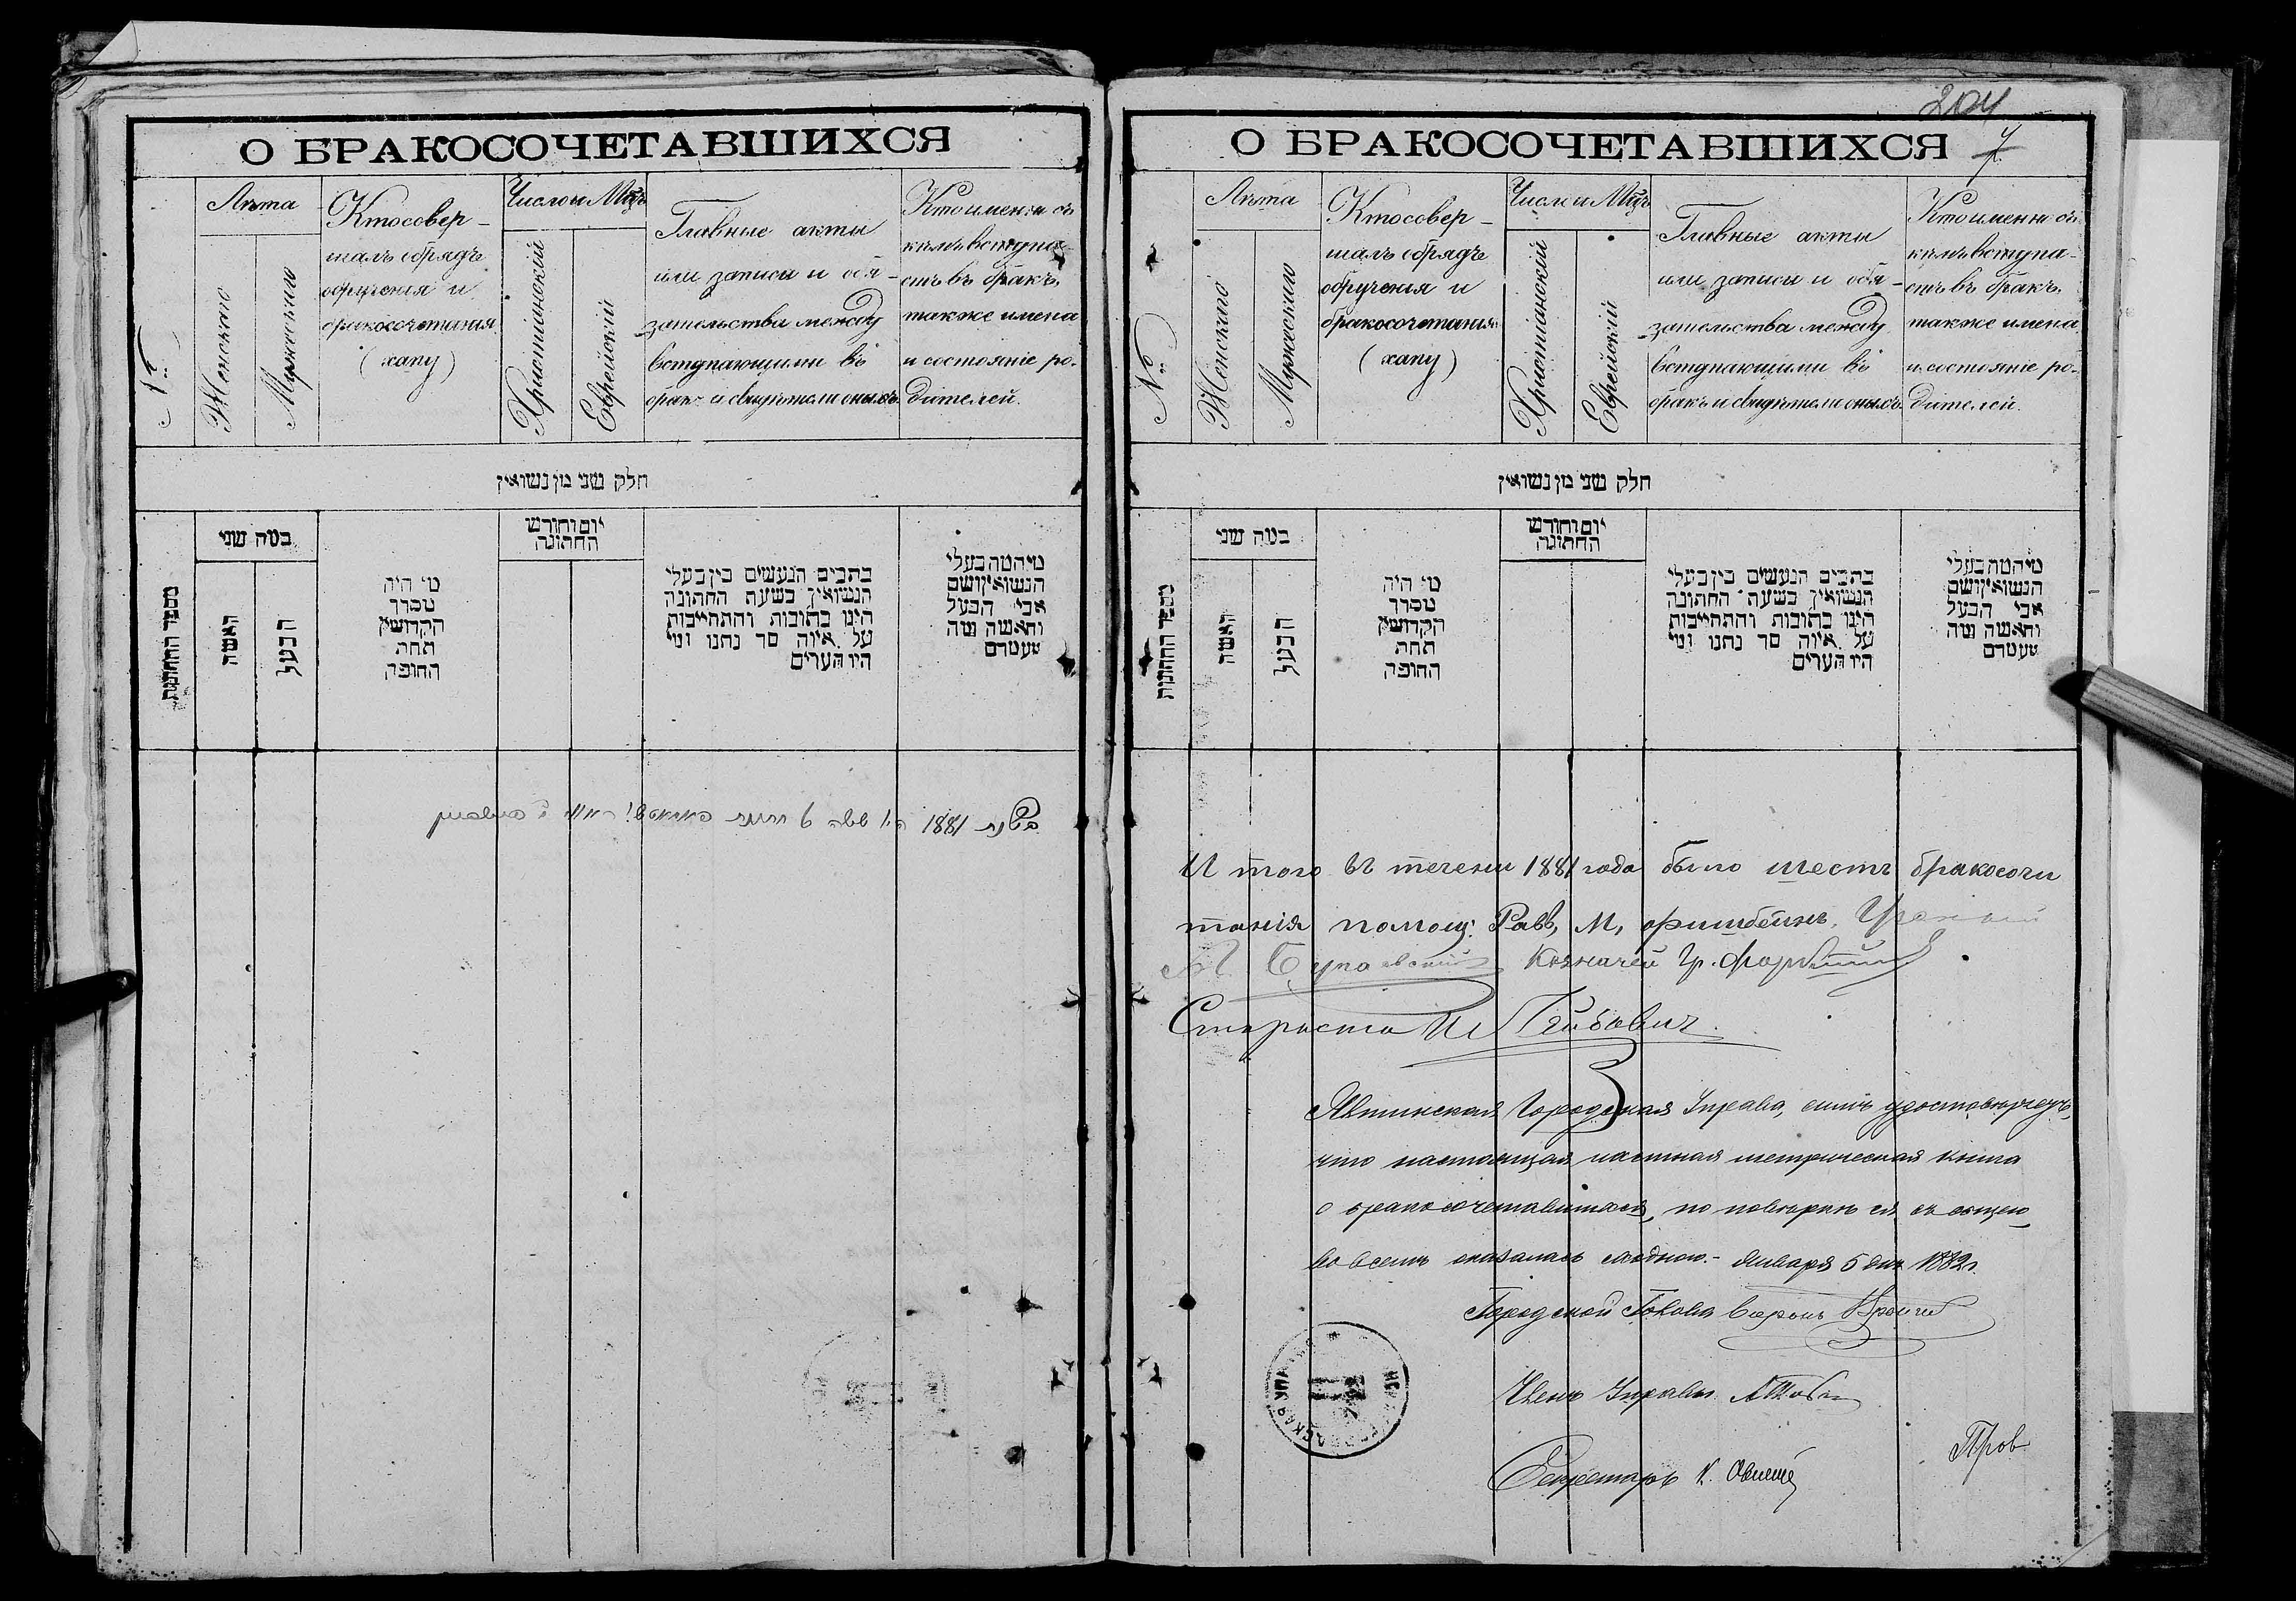 О БРАКОСОЧЕТАВШИХСЯ
№
Лѣта
Женскаго
Мужескаго
Кто совер-
шалъ обрядъ
обрученія и
бракосочетанія
(хапу)
Число и Мѣц
Христіанскій
Еврейскій
Главные акты
или записи и обя-
зательства между
вступающими въ
бракъ и свидѣтели оныхъ
Кто именно съ
кѣмъ вступа-
етъ въ бракъ,
также имена
и состояніе ро-
дителей.
חלק שני מן נשואין
מספר החתונות
במה שני
האשה
הבעל
מי היה
מסדר
הקדושין
תחת
החופה
יום וחודש
החתונה
כתבים הנעשים בין בעלי
הנשואין בשעת החתונה
היינו כתובות והתחייבות
על איזה סך נתנו ומי
היו העדים
מי המה בעלי
הנשואין ושם
אבי הבעל
והאשה ומה
מעמדם
בשנת 1881
204
О БРАКОСОЧЕТАВШИХСЯ 7
№
Лѣта
Женскаго
Мужескаго
Кто совер-
шалъ обрядъ
обрученія и
бракосочетанія
(хапу)
Число и Мѣц
Христіанскій
Еврейскій
Главные акты
или записи и обя-
зательства между
вступающими въ
бракъ и свидѣтели оныхъ
Кто именно съ
кѣмъ вступа-
етъ въ бракъ,
также имена
и состояніе ро-
дителей.
חלק שני מן נשואין
מספר החתונות
במה שני
האשה
הבעל
מי היה
מסדר
הקדושין
תחת
החופה
יום וחודש
החתונה
כתבים הנעשים בין בעלי
הנשואין בשעת החתונה
היינו כתובות והתחייבות
על איזה סך נתנו ומי
היו העדים
מי המה בעלי
הנשואין ושם
אבי הבעל
והאשה ומה
מעמדם
И того въ течени 1881 года было шесть бракосочи
танія помощ. Равв. М. Фришбейнъ. Ученый
Казначей Гр.
Староста
Городская Управа, симъ удостовѣряетъ,
что настоящая частная метрическая книга
о бракосочетавшихся, по повѣркѣ ея съ общею,
во всемъ оказалась сходною. - Января 5 дня 1882 г.
Городской Голова Баронъ
Членъ Управы
Секретарь К.
Пров.